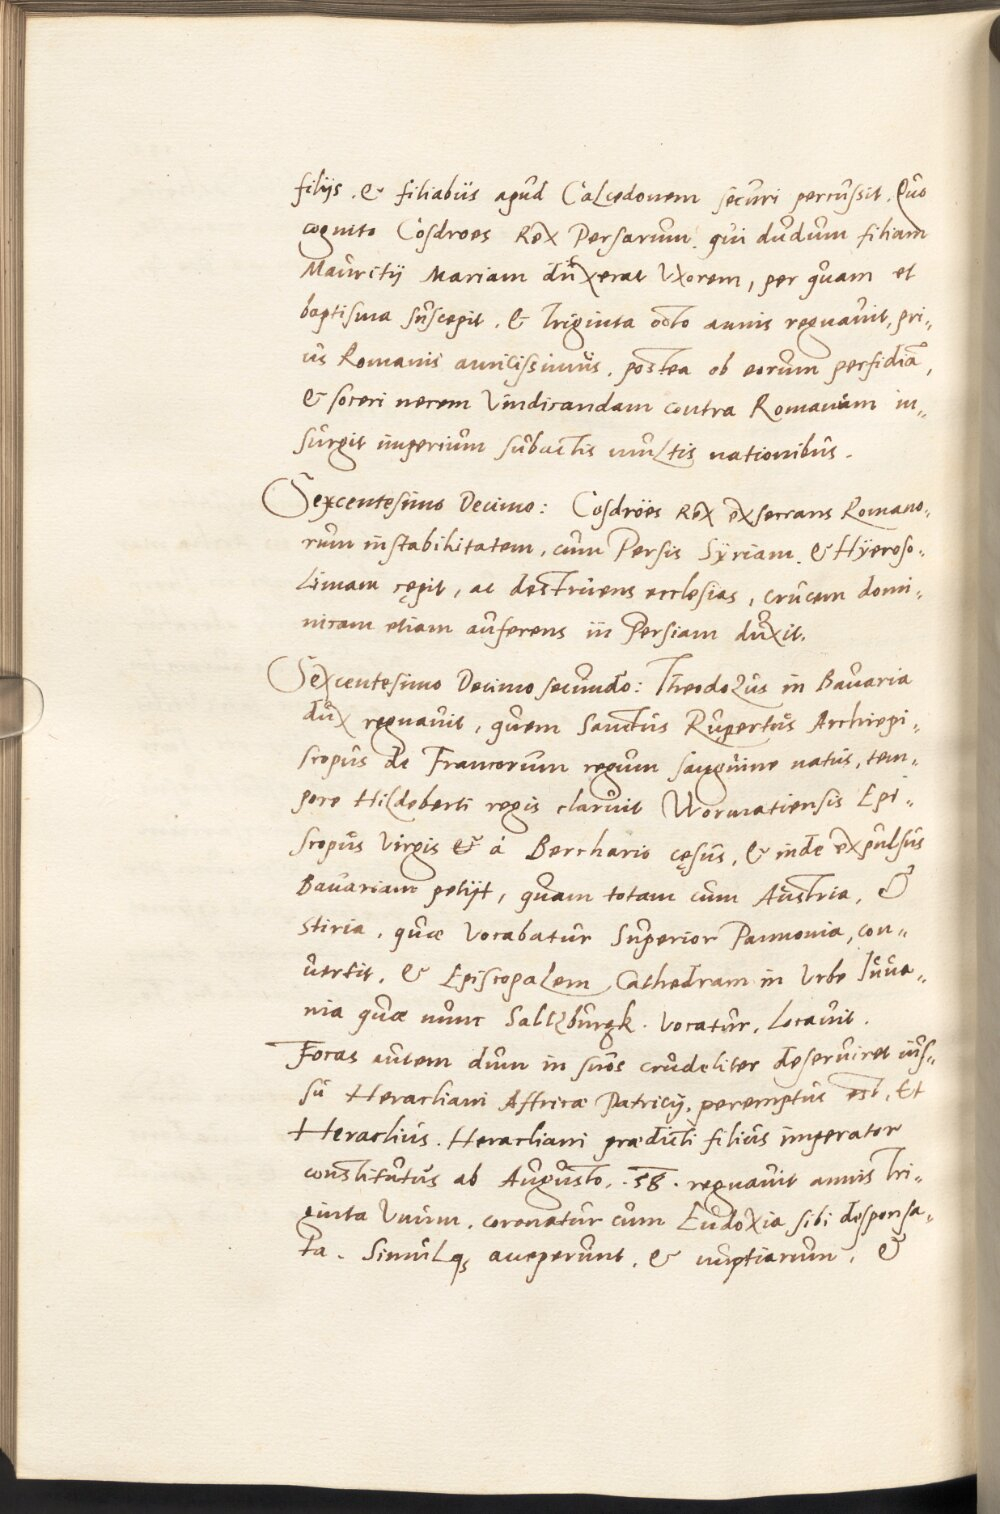 filijs . & filiabús apúd Calcedonem secúri percússit . Qúo
cognito Cosdroes Rex Persarúm . qúi dúdúm filiam
Maúritij Mariam dúxerat Vxorem, per qúam et
baptisma súscepit . & triginta octo annis regnaúit, pri„
ús Romanis amicissimús . postea ob eorúm perfidiã,
& soceri necem Vindicandam contra Romanúm in„
súrgit imperiúm súbactis múltis nationibús .
Sexcentesimo Decimo : Cosdröes Rex exsecrans Romano„
rúm instabihitatem, cúm Persis Sÿriam . & Hÿeroso„
Limam cępit, ac destrúens ecclesias, crúcem domi„
nicam etiam aúferens in Persiam dúxit.
Sexcentesimo Decimo secúndo : Theodolús in Baúaria
dúx regnaúit, qúem Sanctús Rúpertús Archiepi„
scopús de Francorúm regúm sangúine natús, tem„
pore Hildeberti regis clarúit Wormatiensis Epi„
scopús Virgis & á Berchario cęsús, & inde expúlsús
Baúariam petijt, qúam totam cúm Aústria, &
stiria . qúæ Vocabatúr Súperior Pannonia, con„
úertit, & Episcopalem Cathedram in Vrbe Júúa„
nia qúæ núnc Saltzbúrgk . Vocatúr, Locaúit .
Focas aútem dúm in súos crúdeliter deseruiret iús„
sú Heracliani Affricæ Patricij, peremptús est, Et
Heraclius . Heracliani prædicti filiús imperator
constitútús ab Aúgústo . . 58 . regnaúit annis tri„
ginta Vnúm . coronatúr cúm Eúdoxia sibi desponsa„
ta . Simúlqꝫ acceperúnt, & núptiarúm, &